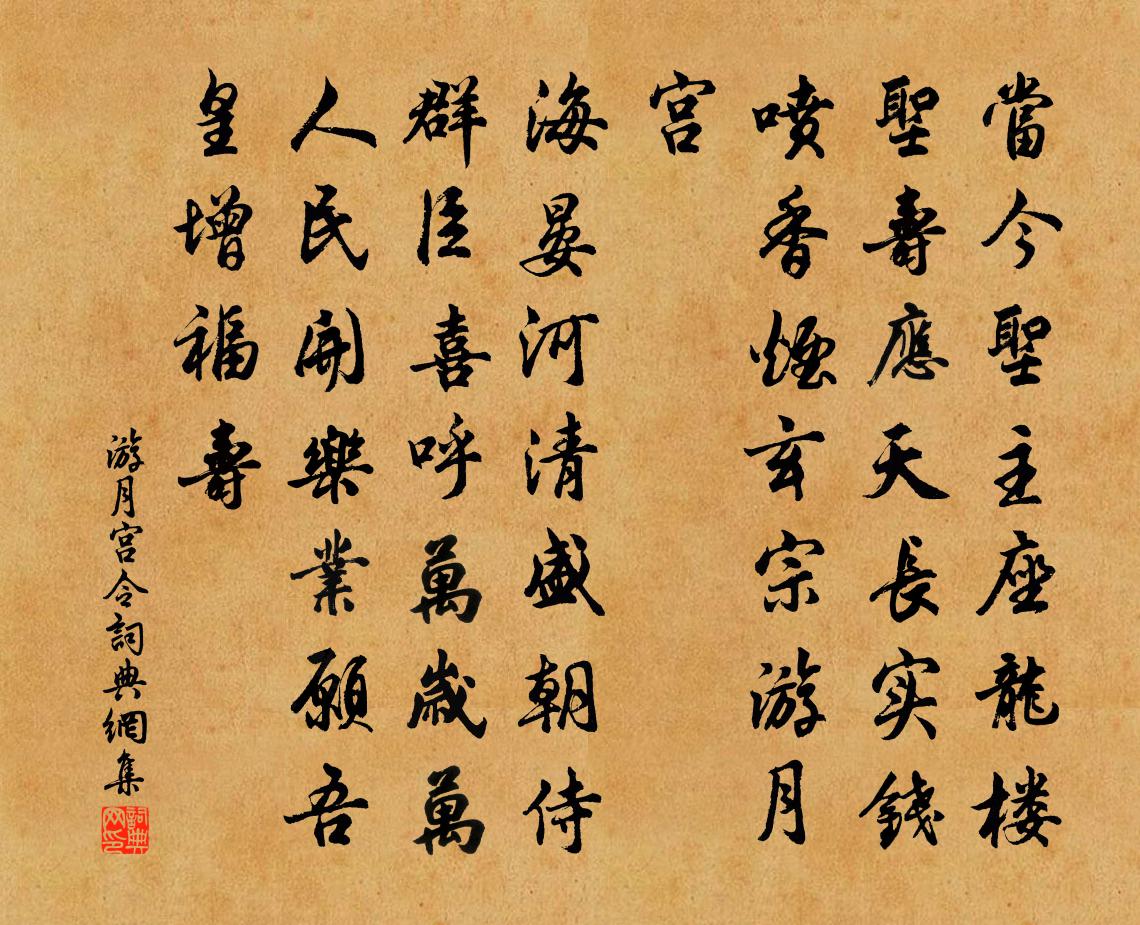 當今聖主座龍楼
聖壽應天長实錢
噴香煙玄宗游月
宫
海晏河清盛朝侍
群臣喜呼萬歲萬
人民開樂業願吾
皇增福壽
游月宫令詞典網集
詞典网印